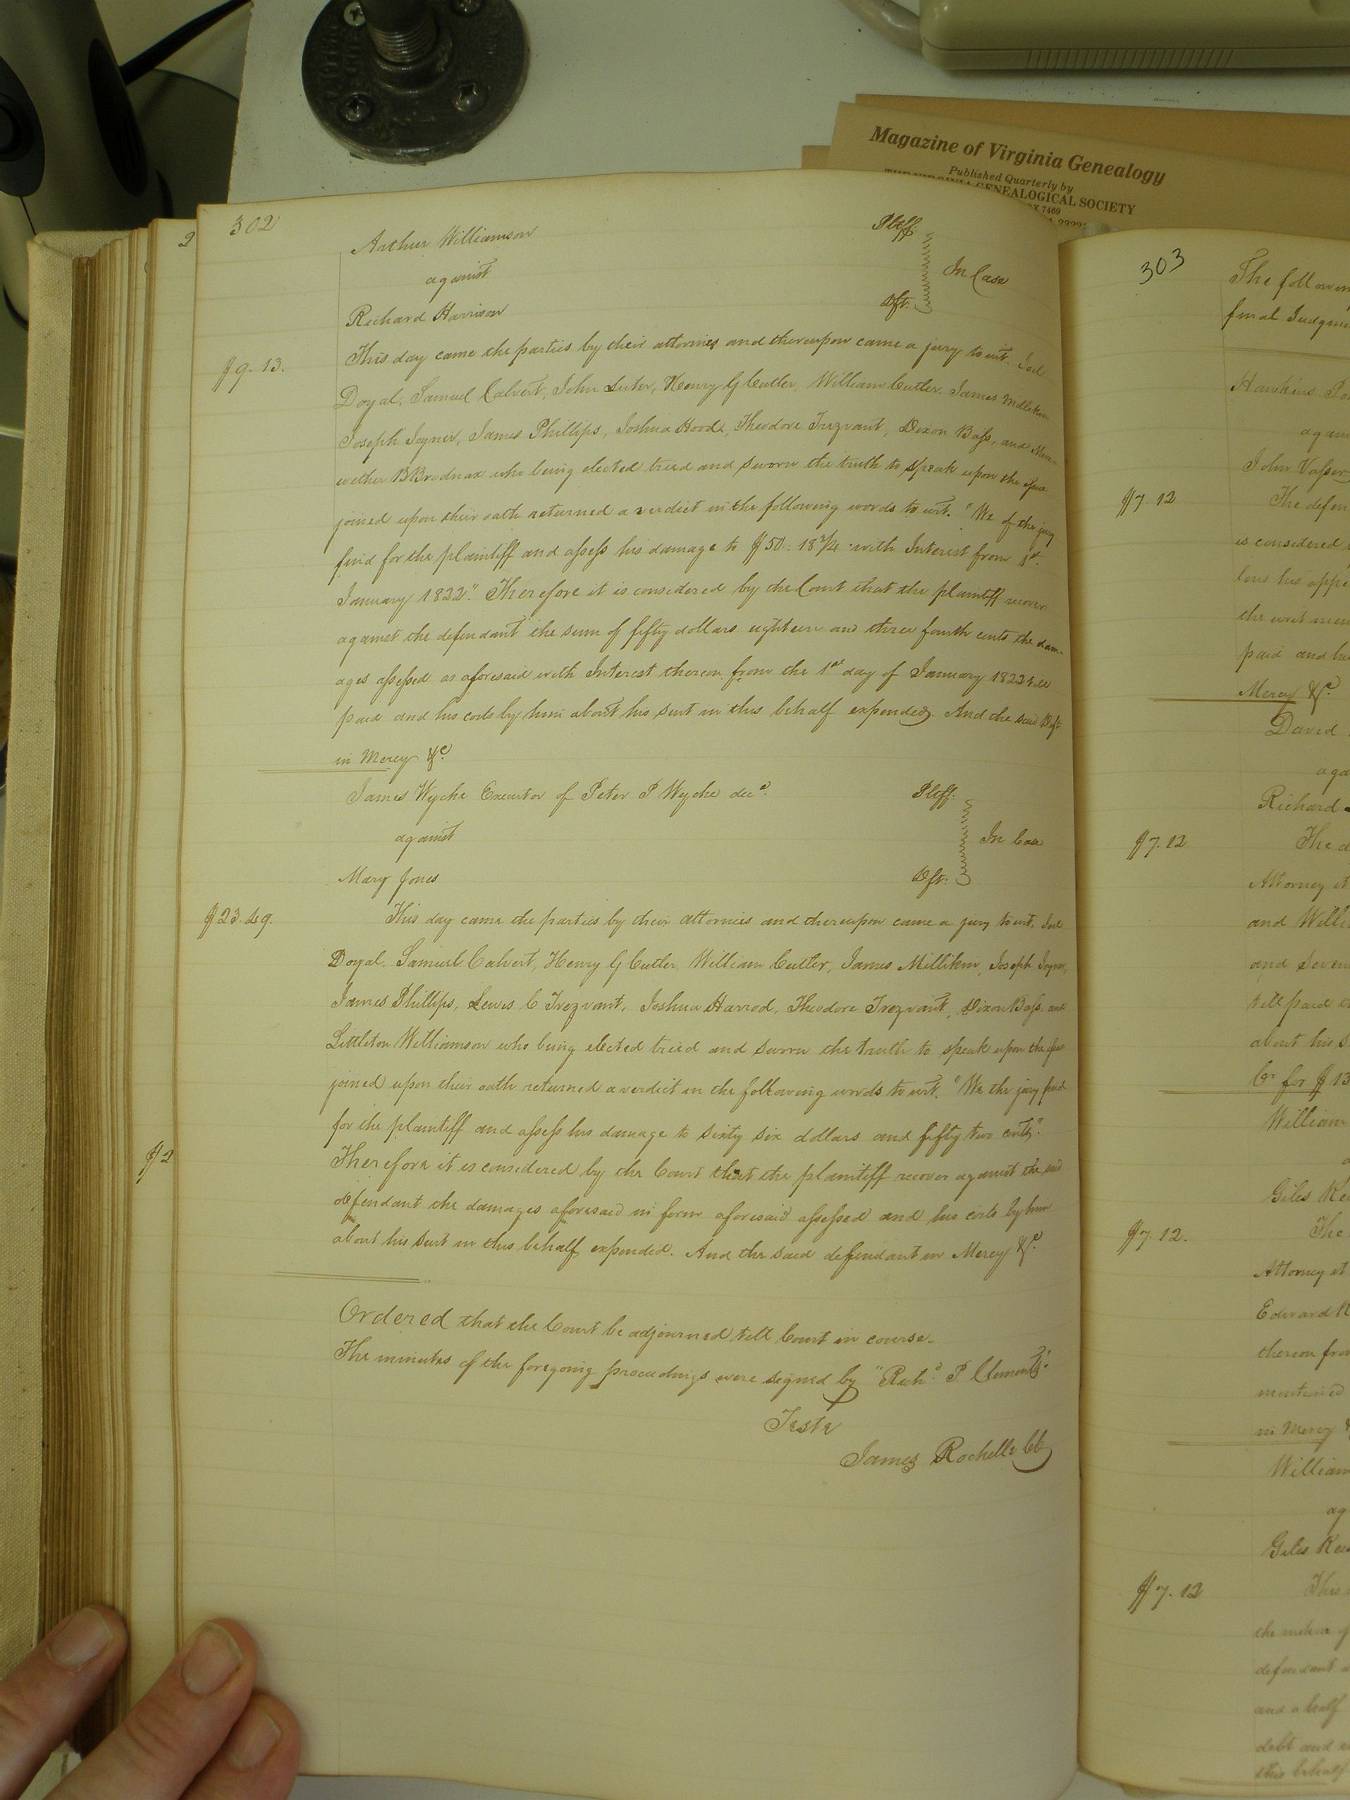 Magazine of Virginia Genealogy
Published Quarterly by
GENEALOGICAL SOCIETY
302
Arthur Williamson Pltff.
against In Case
Richard Harrison Dft.
$9.13.
This day came the parties by their attornies and thereupon came a jury to wit. Joel
Doyal, Samuel Calvert, John Luter, Henry G Cutler, William Cutler, James Milliken
Joseph Joyner, James Phillips, Joshua Hood, Theodore Trezvant, Dixon Bass, and Meri-
wether B Brodnax who being elected tried and sworn the truth to speak upon the issue
joined upon their oath returned a verdict in the following words to wit. "We of the jury
find for the plaintiff and assess his damage to $50.18 3/4 with Interest from 1st.
January 1822". Therefore it is considered by the Court that the plaintiff recover
against the defendant the sum of fifty dollars eighteen and three fourth cents the dam-
ages assessed as aforesaid with Interest thereon from the 1st day of January 1822 till
paid and his costs by him about his suit in this behalf expended. And the said Dft
in Mercy &c.
James Wyche Executor of Peter P Wyche decd. Pltff.
against In Case
Mary Jones Dft.
This day came the parties by their attornies and thereupon came a jury to wit, Joel
Doyal, Samuel Calvert, Henry G Cutler, William Cutler, James Milliken, Joseph Joyner,
James Phillips, Lewis C Trezvant, Joshua Harrod, Theodore Trezvant, Dixon Bass and
Littleton Williamson who being elected tried and sworn the truth to speak upon the issue
joined upon their oath returned a verdict in the following words to wit. "We the jury find
for the plaintiff and assess his damage to sixty six dollars and fifty two cents".
Therefore it is considered by the Court that the plaintiff recover against the said
defendant the damages aforesaid in form aforesaid assessed and his costs by him
about his suit in this behalf expended. And the said defendant in Mercy &c.
Ordered that the Court be adjourned till Court in course.
The minutes of the foregoing proceedings were signed by "Richd. P. Clements".
Teste
James Rochelle Clk
$2
303
The follow
final Judgme
Hawkins
again
John Vasser
$7.12
The defen
is considered
the writ men
paid and his
Mercy &c.
David
aga
Richard
$7.12
The d
Attorney it
and Willi
and Seven
till paid
about his s
Cr for $13
William
Giles Ke
$7.12.
The
Attorney it
Edward
thereon from
mentioned
in Mercy
William
ag
Giles Ree
$7.12
This
defendant
and a half
debt and
this behalf